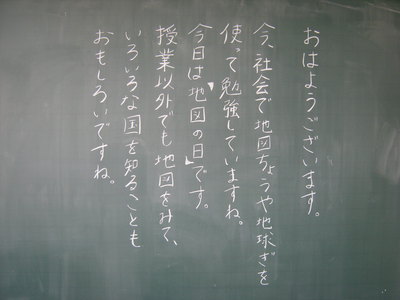 おはようございます。
今、社会で地図ちょうや地球ぎを
使って勉強していますね。
今日は「地図の日」です。
授業以外でも地図をみて、
いろいろな国を知ることも
おもしろいですね。